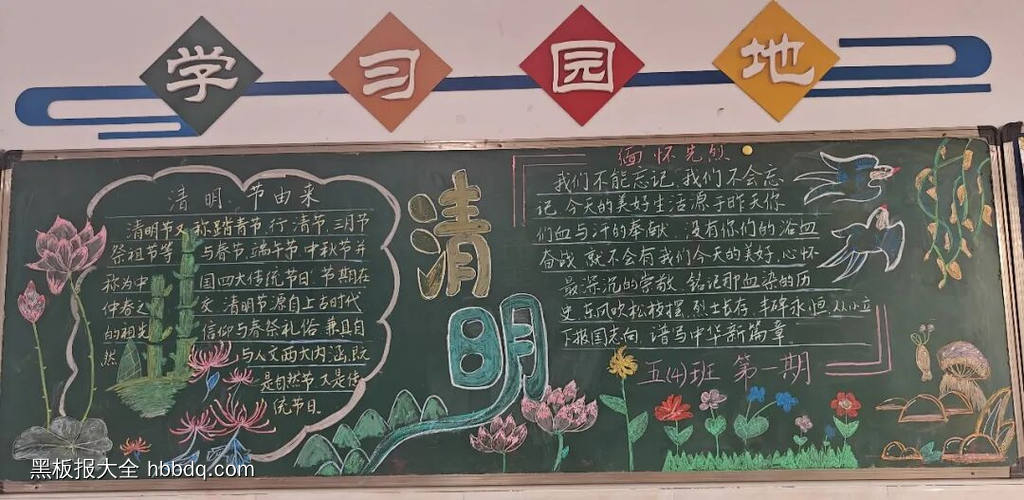 学习园地
清明节由来
清明节又称踏青节、行清节、三月节
祭祖节等 与春节、端午节、中秋节并
称为中 国四大传统节日 节期在
仲春之 交 清明节源自上古时代
的祖先 信仰与春祭礼俗 兼具自
然 与人文两大内涵,既
是自然节 又是传
统节日
清明
缅怀先烈
我们不能忘记,我们不会忘
记,今天的美好生活源于昨天你
们血与汗的奉献 没有你们的浴血
奋战 就不会有我们今天的美好,心怀
最深沉的崇敬 铭记那血染的历
史,东风吹松枝摆 烈士长存 丰碑永恒 从小立
下报国志向 谱写中华新篇章
五(4)班 第一期
黑板报大全 hbbdq.com